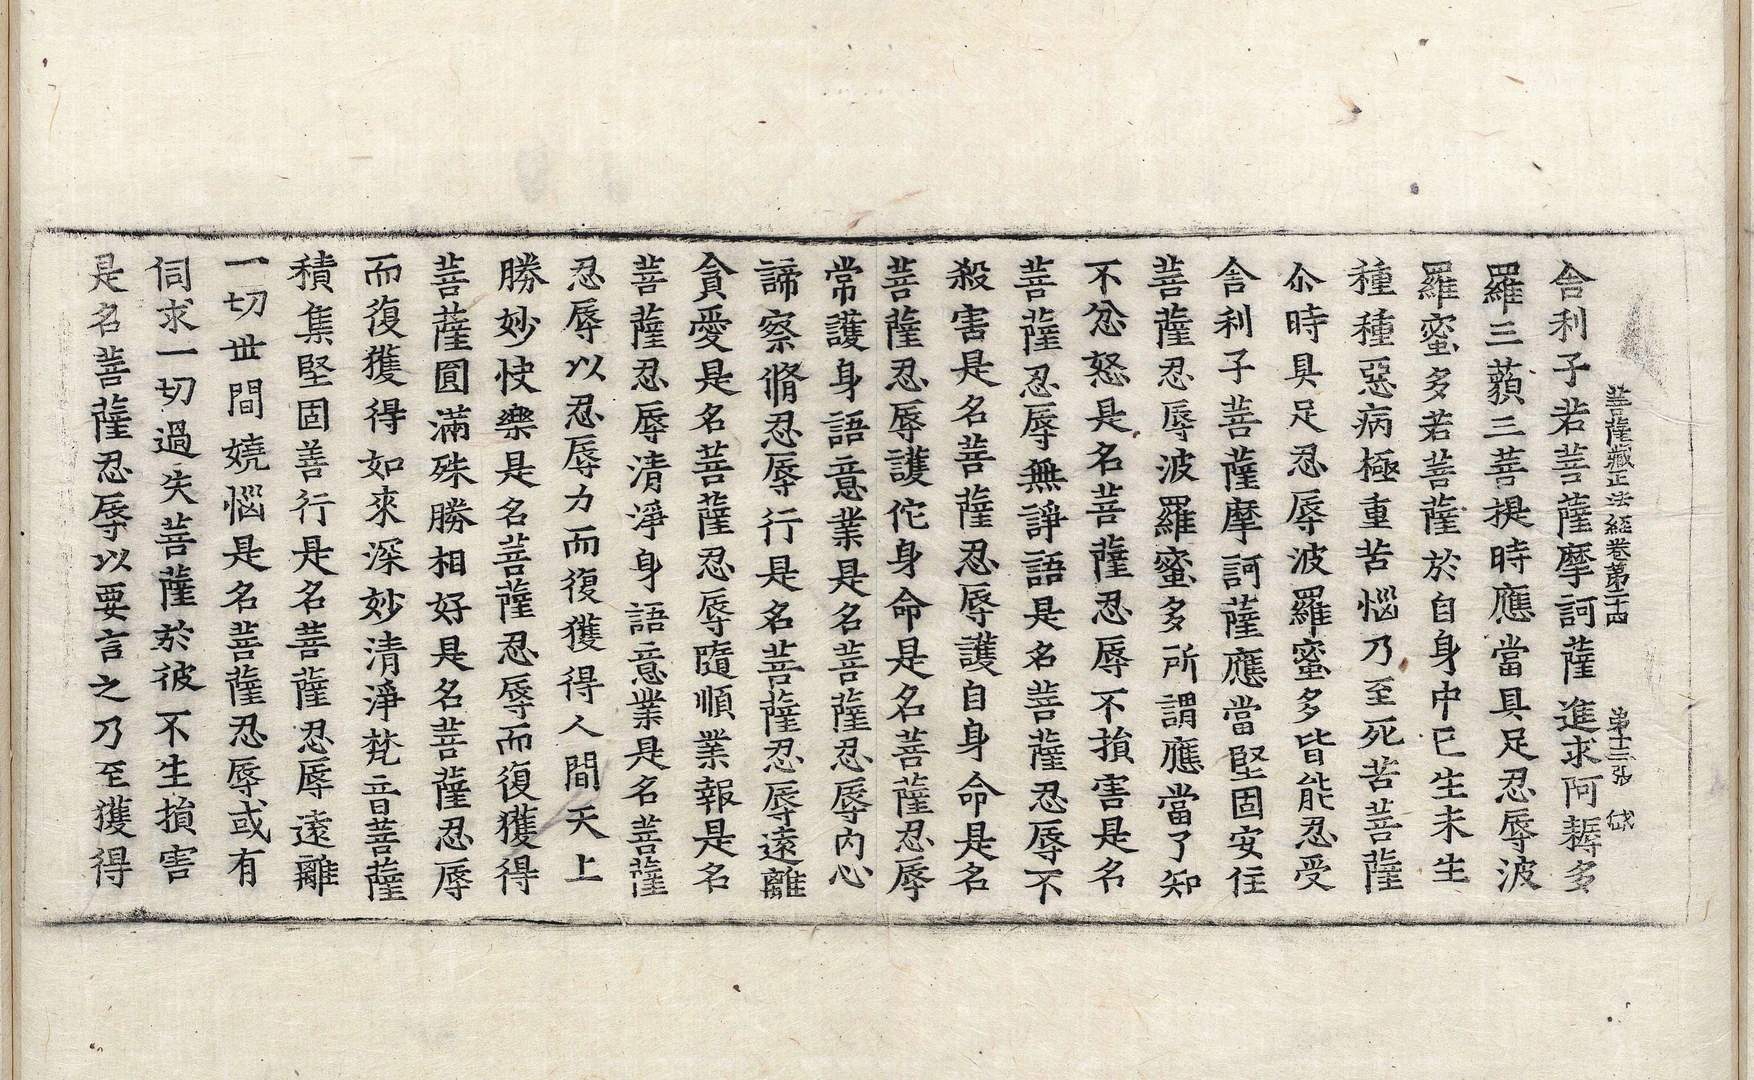 菩薩藏正法經卷第二十四　第十三張　岱
舍利子若菩薩摩訶薩進求阿耨多
羅三藐三菩提時應當具足忍辱波
羅蜜多若菩薩於自身中已生未生
種種惡病極重苦惱乃至死苦菩薩
尒時具足忍辱波羅蜜多皆能忍受
舍利子菩薩摩訶薩應當堅固安住
菩薩忍辱波羅蜜多所謂應當了知
不忿怒是名菩薩忍辱不損害是名
菩薩忍辱無諍語是名菩薩忍辱不
殺害是名菩薩忍辱護自身命是名
菩薩忍辱護佗身命是名菩薩忍辱
常護身語意業是名菩薩忍辱內心
諦察脩忍辱行是名菩薩忍辱遠離
貪愛是名菩薩忍辱隨順業報是名
菩薩忍辱清淨身語意業是名菩薩
忍辱以忍辱力而復獲得人間天上
勝妙快樂是名菩薩忍辱而復獲得
菩薩圓滿殊勝相好是名菩薩忍辱
而復獲得如來深妙清淨梵音菩薩
積集堅固善行是名菩薩忍辱遠離
一切世間嬈惱是名菩薩忍辱或有
伺求一切過失菩薩於彼不生損害
是名菩薩忍辱以要言之乃至獲得